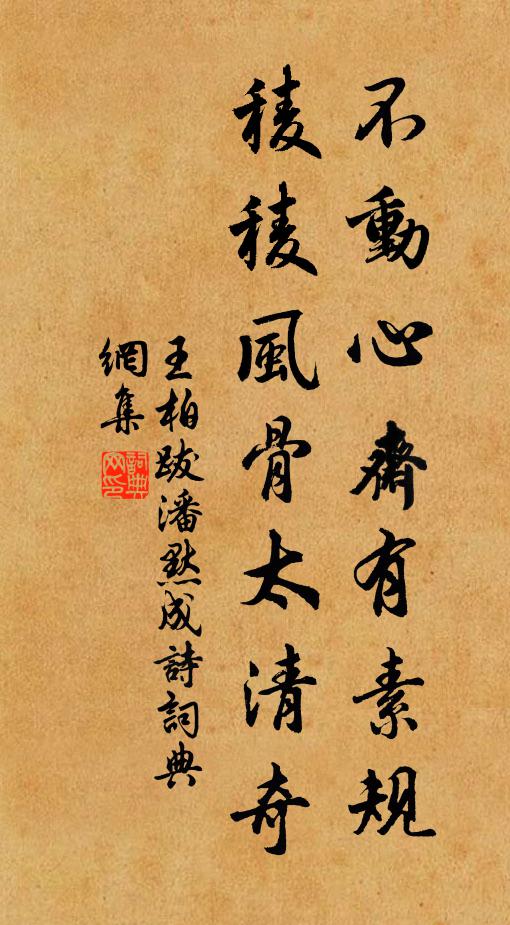 不動心齋有素規
稜稜風骨太清奇
王柏跋潘默成詩詞典
網集
詞典
网印